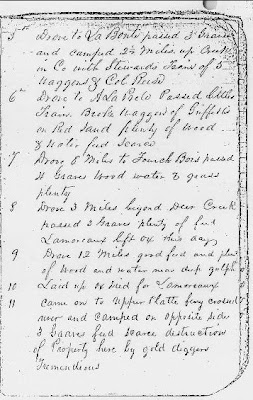 5th Drove to La Bonte passed 3 Graves
and camped 2½ Miles up Creek
in Co with Stewards Train of 5
Waggons & Col Reese
6th Drove to A La Prele Passed Littles
Train. Broke Waggon of Griffiths
on Red Sand plenty of Wood
& Water feed Scarce
7 Drove 8 Miles to Fourch Bois passed
4 Graves Wood water & grass
plenty
8 Drove 3 Miles beyond Deer Creek
passed 2 Graves plenty of feed
Lamoreaux left ox this day
9 Drove 12 Miles good feed and plenty
of Wood and water near deep gulph
10 Laid up ox tied for Lamoreaux
11 came on to Upper Platte ferry crossed
river and camped on opposite side
3 Graves feed scarce destruction
of Property here by gold diggers
Tremendous